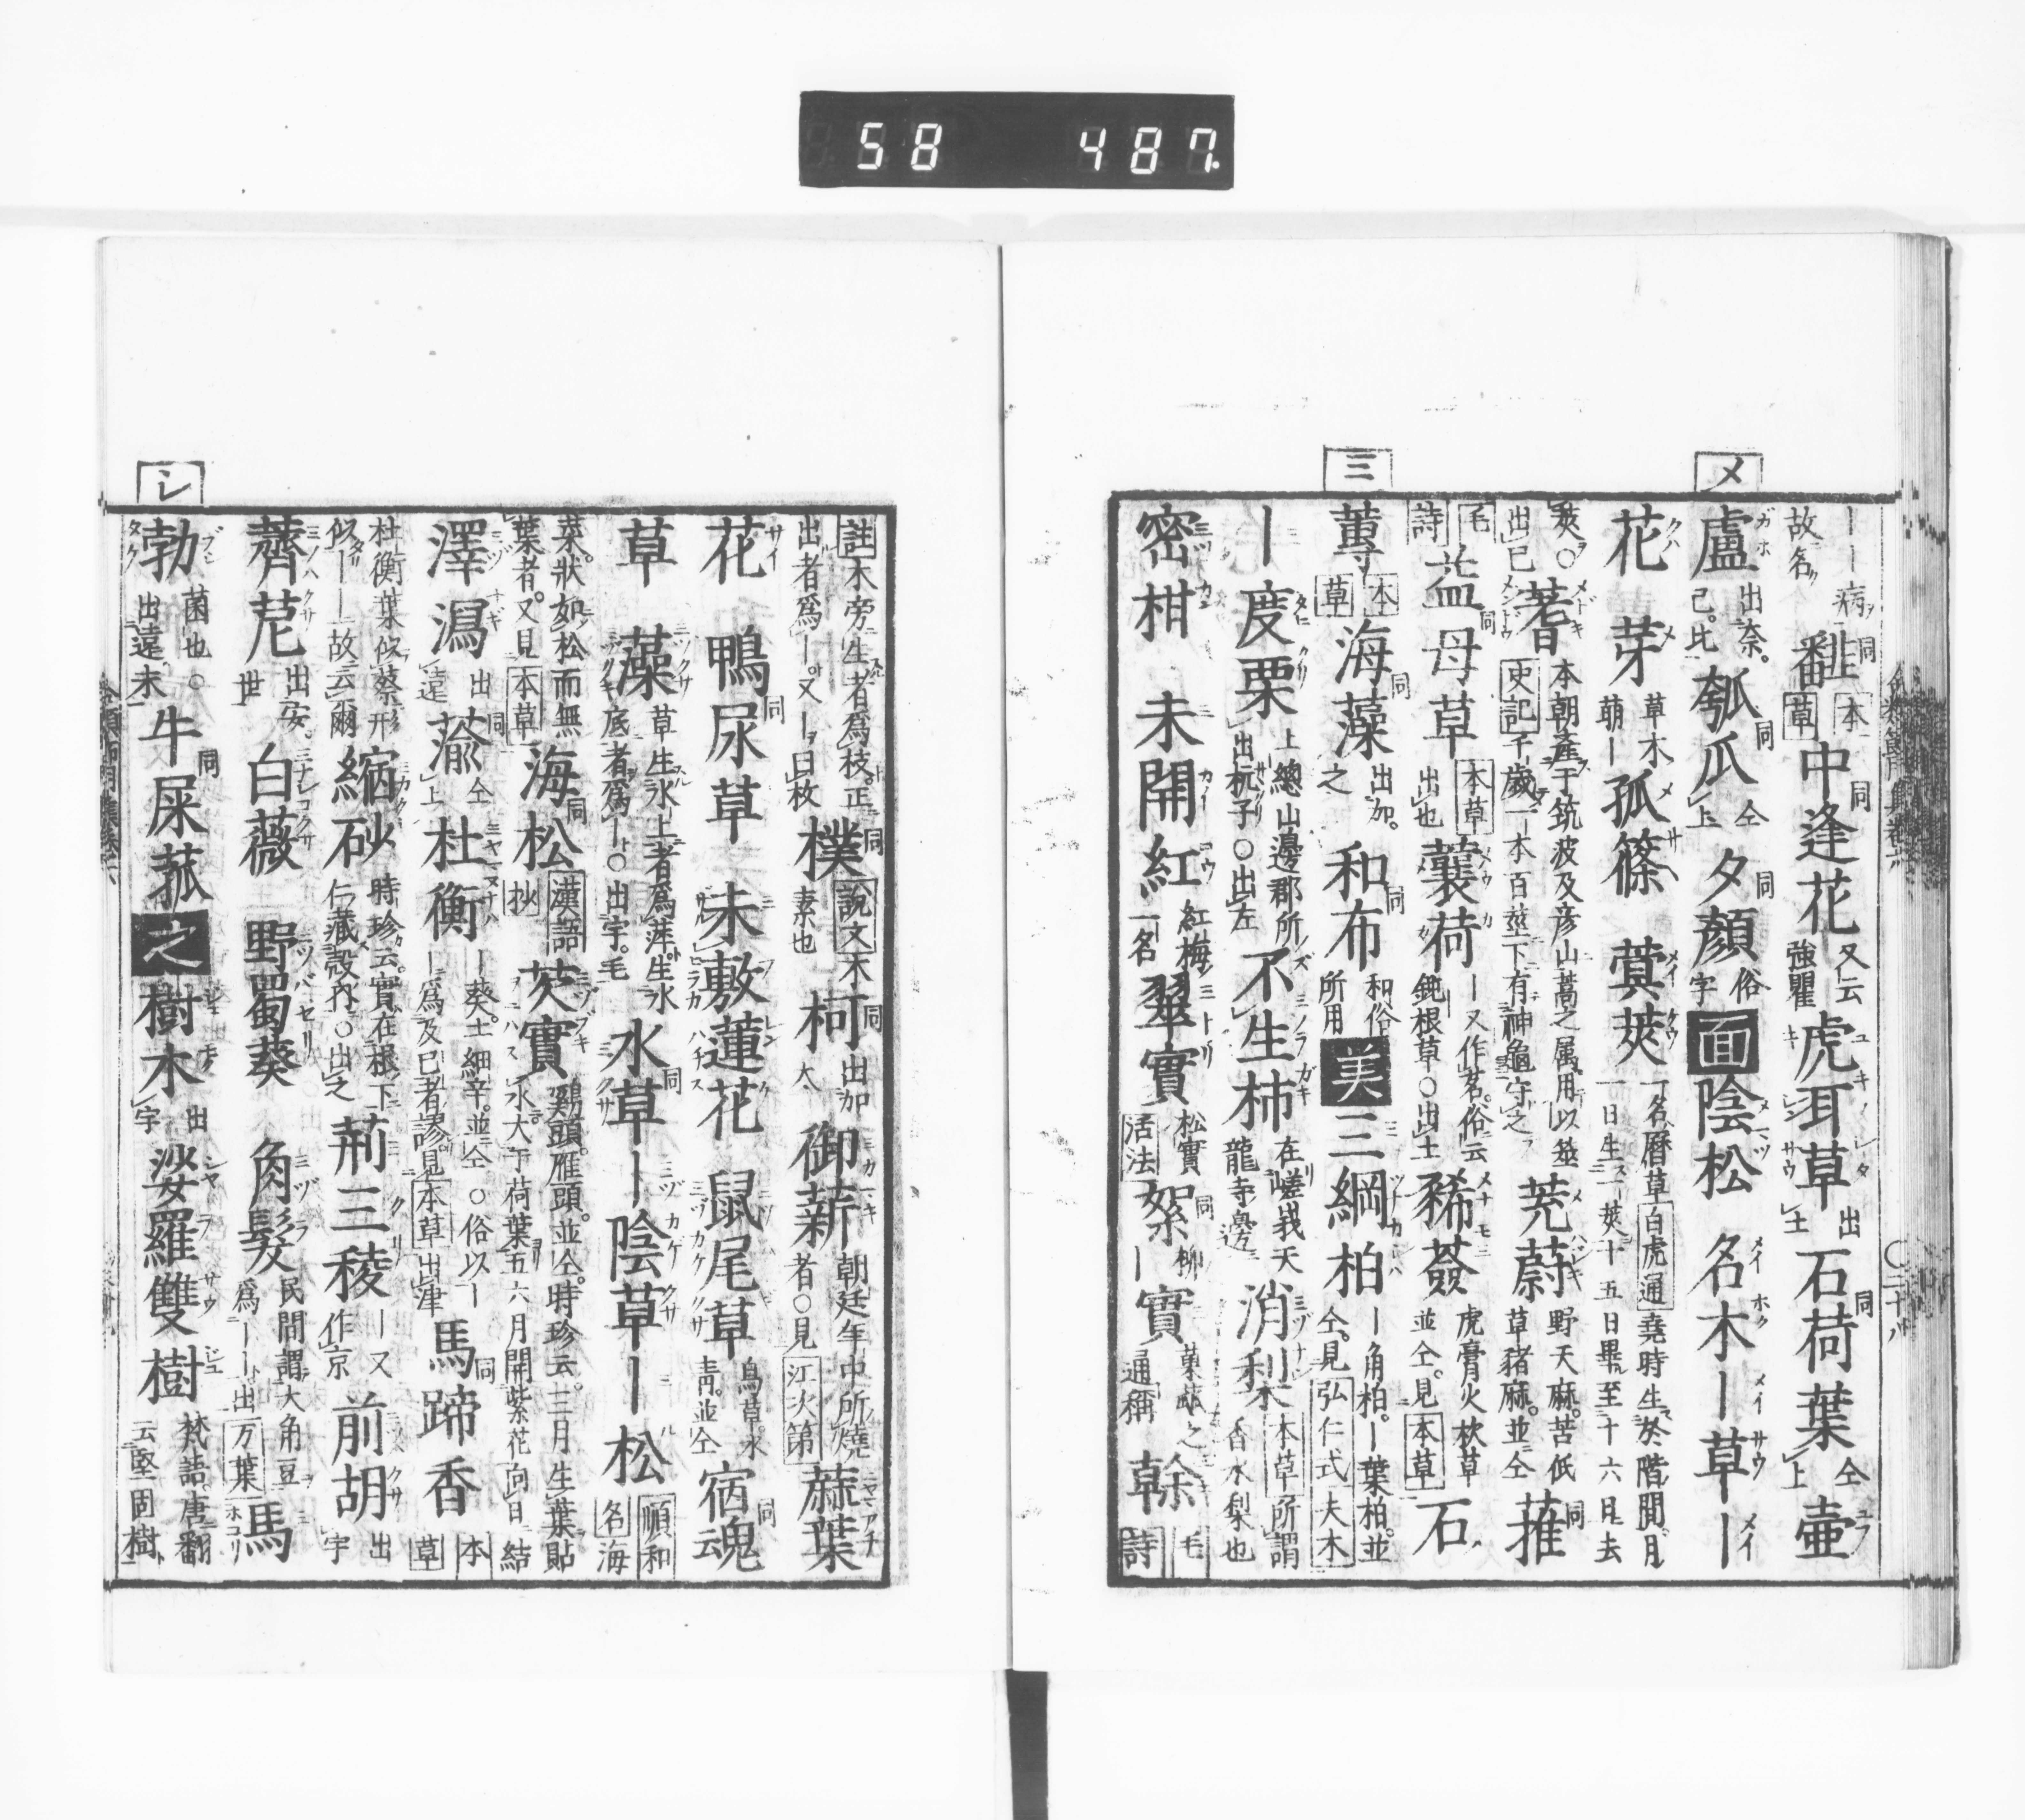 58 487
メ
ミ
ーー病 故名 翻 同 本草 中逢花 同 又云強瞿 虎耳草 出土 石荷葉 同 仝上 壷
盧 出奈己比 瓠瓜 同 仝上 夕顏 同 俗字 面 陰松 名木ー草ー
花 芽 草木萠ー 孤篠 蓂莢 一名暦草 白虎通 堯時生於階間月一日生一莢十五日畢至十六日去
莢○出已 蓍 本朝産于筑波及彦山蒿之属用以筮 史記 千歳一本百莖下有神龜守之 茺蔚 野天麻苦低草豬麻並仝 蓷 同
毛詩 益母草 同 本草 出也 蘘荷 ー又作茗俗云鈍根草○出土 豨薟 虎膏火杴草並仝見 本草 石
蓴 本草 海藻 同 出加之 和布 同 和俗所用 美 三綱柏 ー角柏ー葉柏並仝見 弘仁式 夫木
ー度栗 上總山邊郡所出杬子○出左 不生柿 在嵯峩天龍寺邊 消梨 本草 所謂香水梨也
密柑 未開紅 紅梅一名 翠實 松實 活法 絮 同 柳 ー實 菓蓏之通稱 榦 毛詩
シ
註 木旁生者爲枝正出者爲ー又ー曰枚 樸 同 說文 木素也 柯 同 出加大 御薪 朝廷年中所燒者○見 江次第 蒜葉
花 鴨尿草 同 未敷蓮花 鼠尾草 烏草水靑並仝 宿魂 同
草 藻 草生水上者爲萍生水底者爲ー○出字毛 水草 同 ー陰草ー松 順和名 海
菜狀如松而無葉者又見 本草 海松 同 漢語抄 芡實 鷄頭雁頭並仝時珍云三月生葉貼水大于荷葉五六月開紫花向日結
澤瀉 出遠 蕍 同 仝上 杜衡 ー葵土細辛並仝○俗以ー爲及已者謬見 本草 出津 馬蹄香 同 本草
杜衡葉似葵形似ーー故云爾 縮砂 時珍云實在根下仁藏殼內○出之 荊三稜 ー又作京 前胡 出字
薺苨 出安世 白薇 野蜀葵 角髮 民間謂大角豆爲ーー出 万葉 馬
勃 菌也○出遠末 牛屎菰 同 之 樹木 出字 娑羅雙樹 梵語唐翻云堅固樹